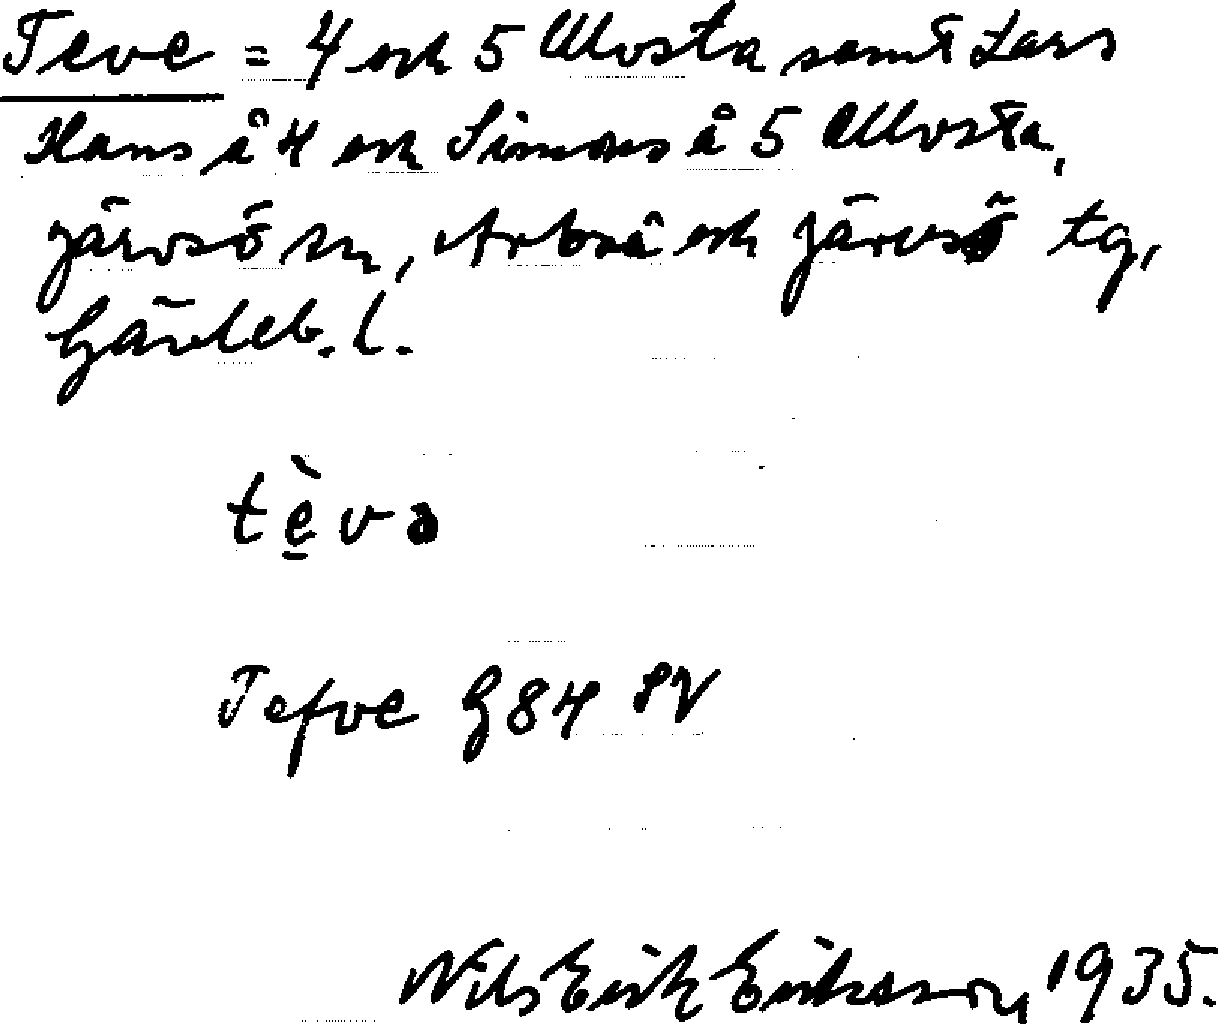 Teve = 4 och 5 Ullvsta samt Lars
Hans å 4 och Simons å 5 Ullvsta,
Järvsö sn, Arbrå och Järvsö tg,
Gävleb. l.
tè̠və
Tefve G84 SV
Nils Erik Eriksson, 1935.